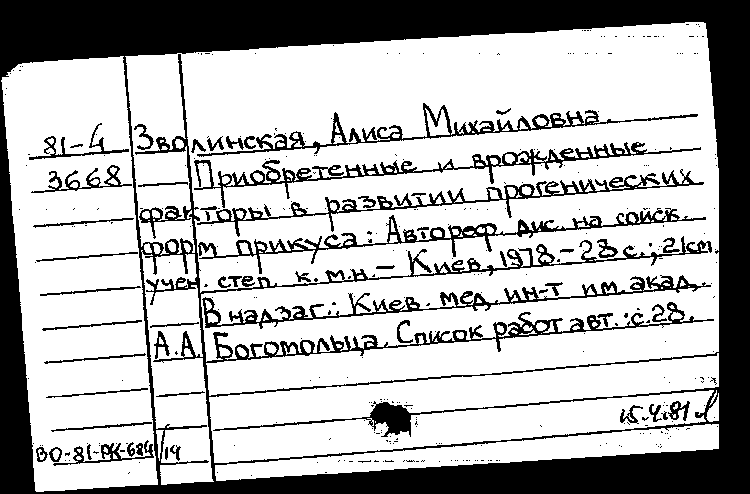 81-4 Зволинская, Алиса Михайловна.
3668 Приобретенные и врожденные
факторы в развитии прогенических
форм прикуса: Автореф. дис. на соиск.
учен. степ. к.м.н.- Киев, 1978.-28 с.; 21см.
В надзаг.: Киев. мед. ин-т им. акад.
А.А. Богомольца. Список работ авт.: с.28.
15.4.81
ВО-81-РК-684/14